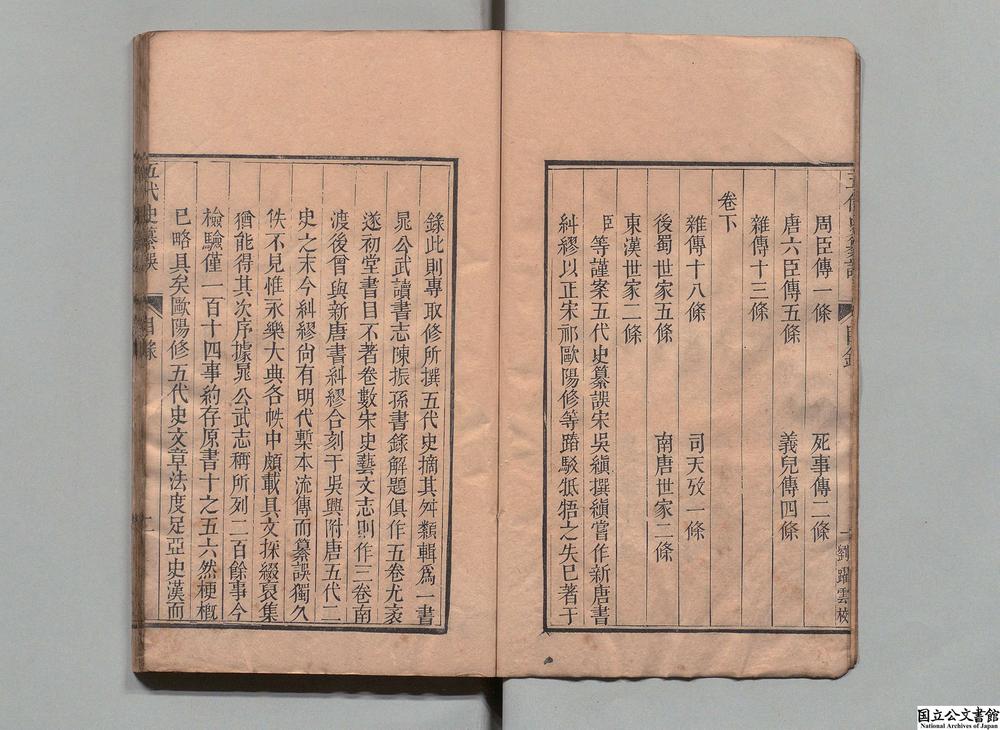 周臣傳一條　死事傳二條
唐六臣傳五條　義兒傳四條
雜傳十三條
卷下
雜傳十八條　司天攷一條
後蜀世家五條　南唐世家二條
東漢世家二條
臣等謹案五代史纂誤宋吳縝撰縝嘗作新唐書
糾繆以正宋祁歐陽修等踳駁牴牾之失已著于
五代史纂誤　目錄　一　劉躍雲校
錄此則專取修所撰五代史摘其舛類輯為一書
晁公武讀書志陳振孫書錄解題俱作五卷尤袤
遂初堂書目不著卷數宋史藝文志則作三卷南
渡後曾與新唐書糾繆合刻于吳興附唐五代二
史之末今糾繆尙有明代槧本流傳而纂誤獨久
佚不見惟永樂大典各帙中頗載其文採綴裒集
猶能得其次序據晁公武志稱所列二百餘事今
檢驗僅一百十四事約存原書十之五六然梗槪
已略具矣歐陽修五代史文章法度足亞史漢而
五代史纂誤　目錄
国立公文書館
National Archives of Japan